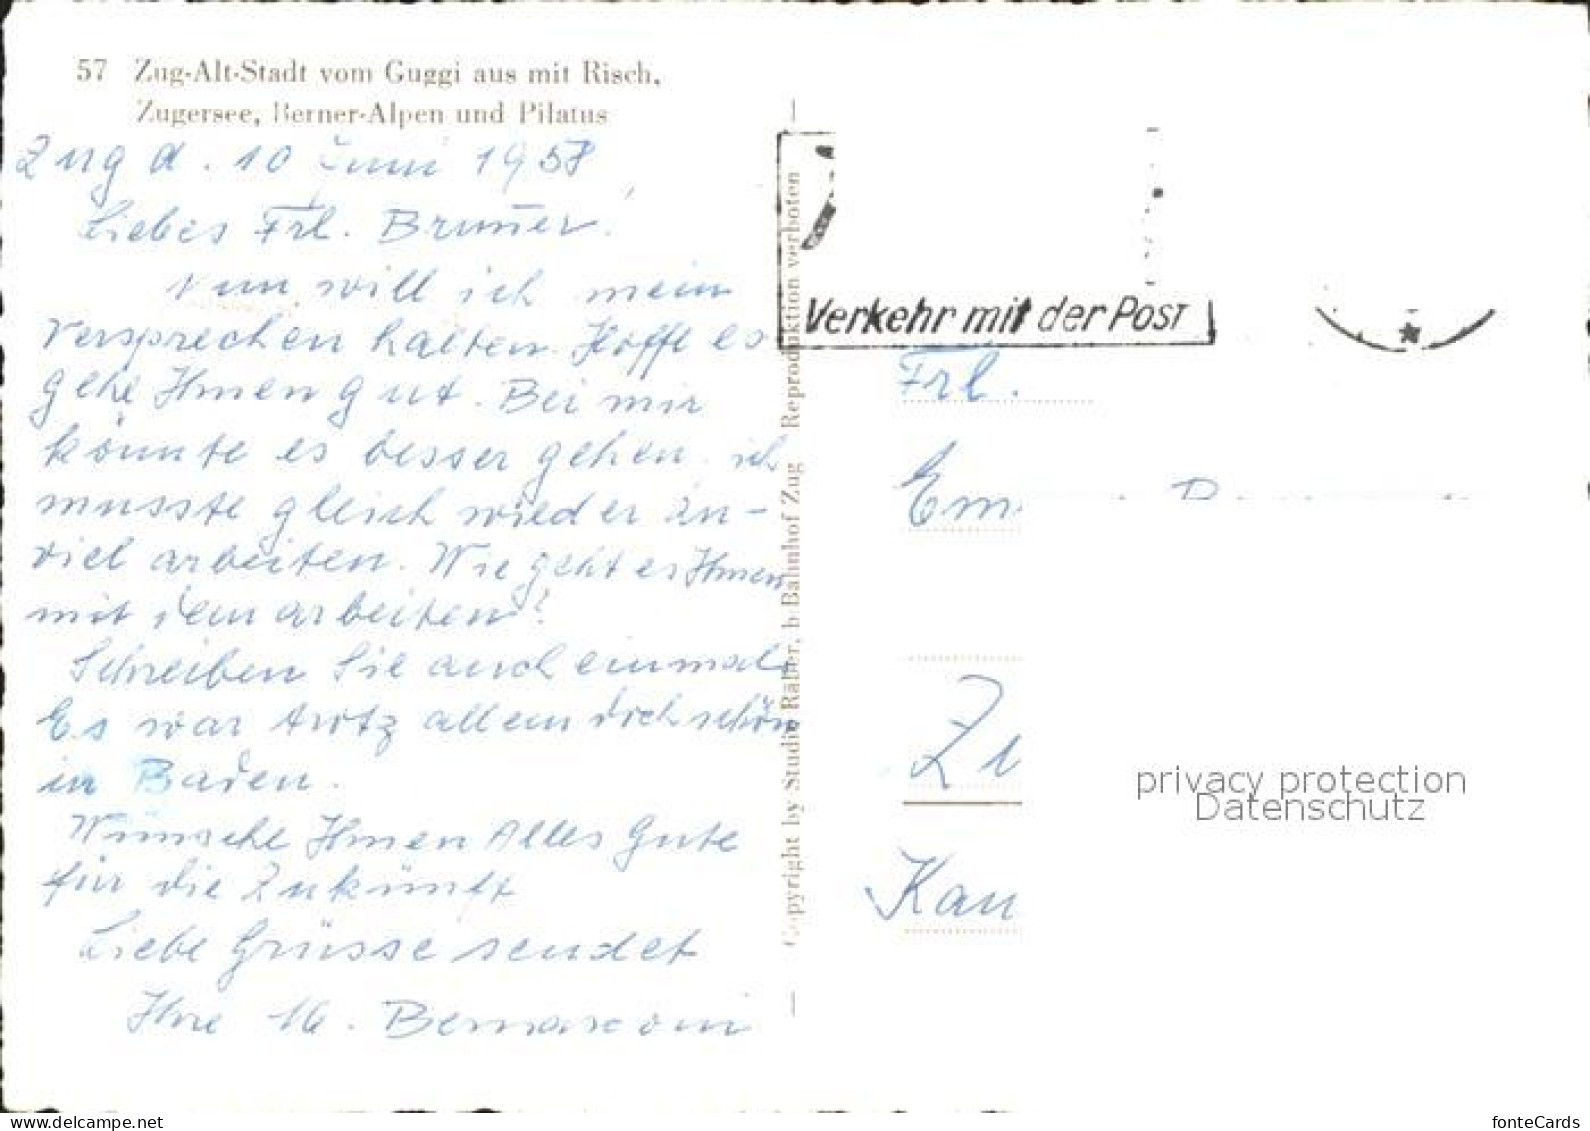 57 Zug-Alt-Stadt vom Guggi aus mit Risch,
Zugersee, Berner-Alpen und Pilatus
Zug d. 10 Juni 1958
Liebes Frl. Brun̄er!
Nun will ich mein
Versprechen halten. Hoffe es
gehe Ihnen gut. Bei mir
könnte es besser gehen. ich
musste gleich wieder zu-
viel arbeiten. Wie geht es Ihnen
mit dem arbeiten?
Schreiben Sie auch einmal.
Es war trotz allem doch schön
in Baden.
Wünsche Ihnen Alles Gute
für die Zukünft
Liebe Grüsse sendet
Ihre M. Bernasconi
Copyright by Studio Räber, b. Bahnhof Zug Reproduktion verboten
Verkehr mit der Post
Frl.
Em
Zu
Kan
privacy protection
Datenschutz
www.delcampe.net
fonteCards